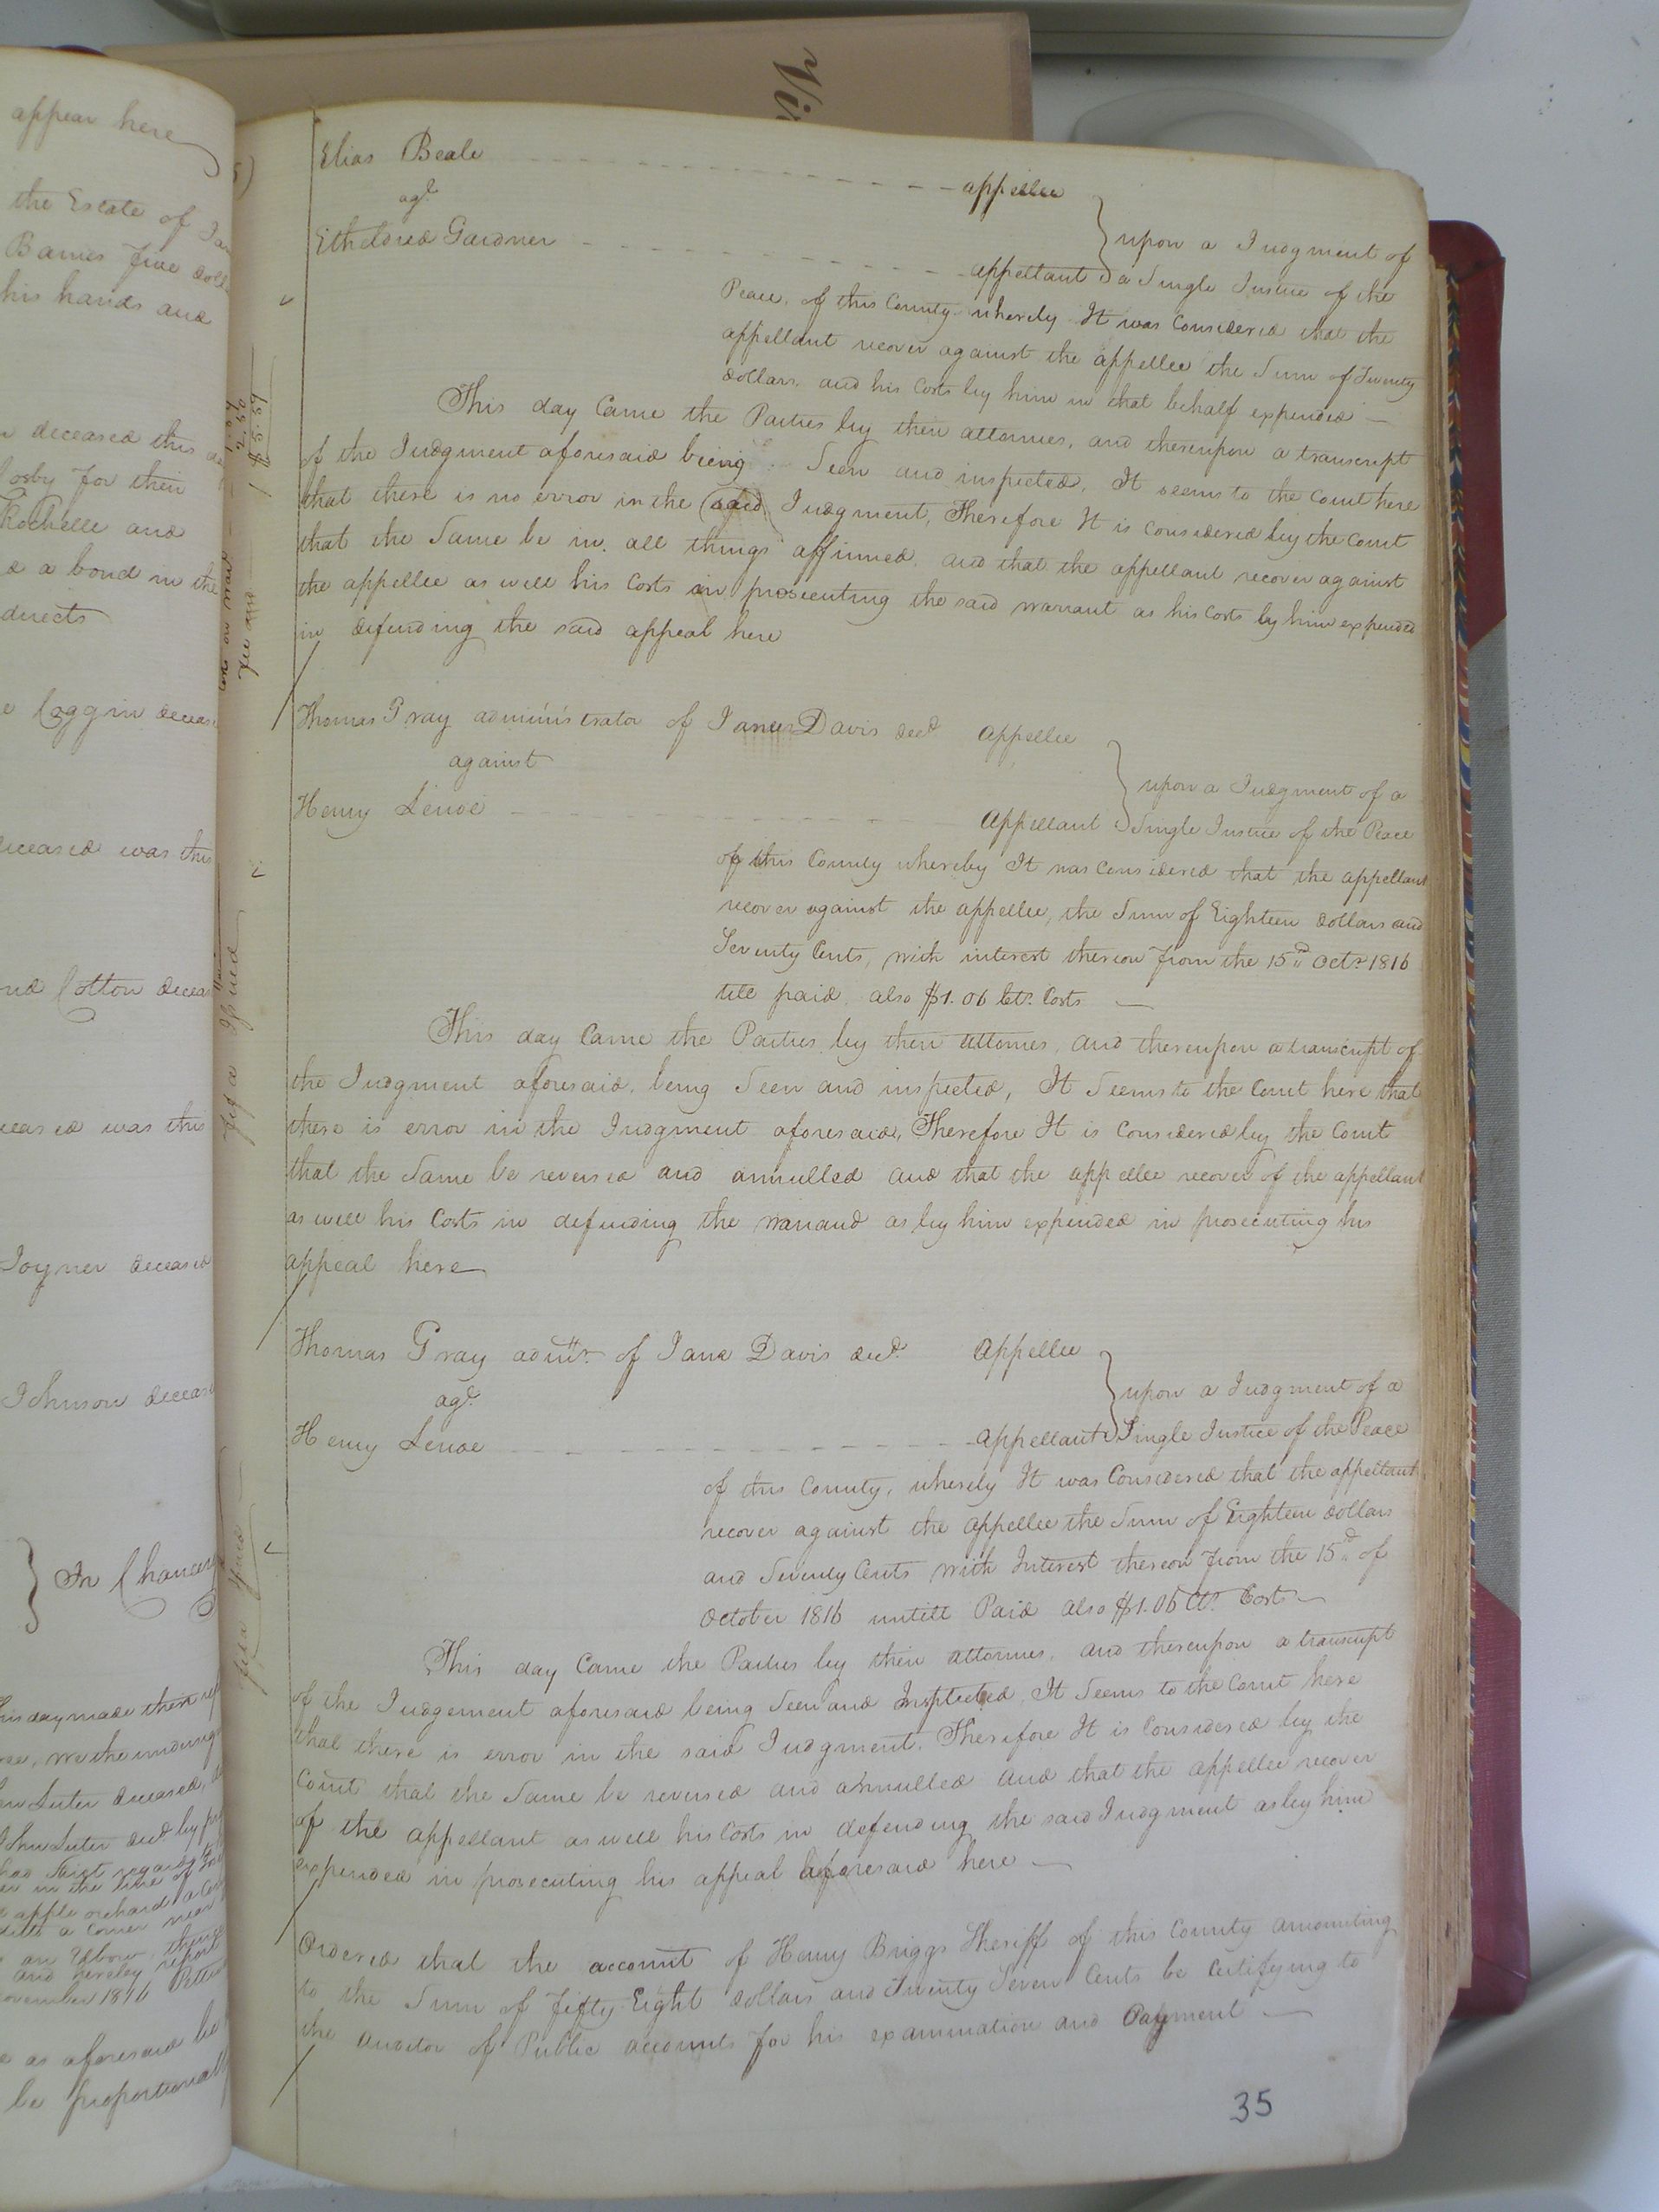 appear here
the Estate of
Barnes five
his hands and
deceased this
for their
Rochelle and
a bond in the
directs
Coggin
deceased was this
Cotton
was this
Joyner deceased
Johnson
In
Vi
Elias Beale appellee
agt.
Etheldred Gardner appellant
upon a Judgment of
a Single Justice of the
Peace, of this County whereby It was Considered that the
appellant recover against the appellee the Sum of Twenty
dollars, and his Costs by him in that behalf expended
This day Came the Parties by their attornies, and thereupon a transcript
of the Judgment aforesaid being Seen and inspected, It seems to the Court here
that there is no error in the Judgment, Therefore It is Considered by the Court
that the Same be in all things affirmed, and that the appellant recover against
the appellee as well his Costs in prosecuting the said warrant as his Costs by him expended
in defending the said appeal here
Thomas Gray administrator of Davis decd appellee
against
Henry appellant
upon a Judgment of a
Single Justice of the Peace
of this County whereby It was Considered that the appellant
recover against the appellee, the Sum of Eighteen dollars and
Seventy Cents, with interest thereon from the 15 Octr. 1816
till paid, also $1.06 Cts. Costs
This day Came the Parties by their attornies, and thereupon a transcript of
the Judgment aforesaid, being Seen and inspected, It Seems to the Court here that
there is error in the Judgment aforesaid, Therefore It is Considered by the Court
that the Same be reversed and annulled and that the appellee recover of the appellant
as well his Costs in defending the as by him expended in prosecuting his
appeal here
Thomas Gray of Jane Davis decd. appellee
agt.
Henry appellant
upon a Judgment of a
Single Justice of the Peace
of this County, whereby It was Considered that the appellant
recover against the appellee the Sum of Eighteen dollars
and Seventy Cents with Interest thereon from the 15 of
October 1816 untill Paid also $1.06 Cts. Costs
This day Came the Parties by their attornies, and thereupon a transcript
of the Judgement aforesaid being Seen and Inspected, It Seems to the Court here
that there is error in the said Judgment. Therefore It is Considered by the
Court that the Same be reversed and annulled and that the appellee recover
of the appellant as well his Costs in defending the said Judgment as by him
expended in prosecuting his appeal aforesaid here
Ordered that the account of Henry Briggs Sheriff of this County amounting
to the Sum of fifty Eight dollars and Twenty Seven Cents be Certifying to
the auditor of Public accounts for his examination and Payment
35